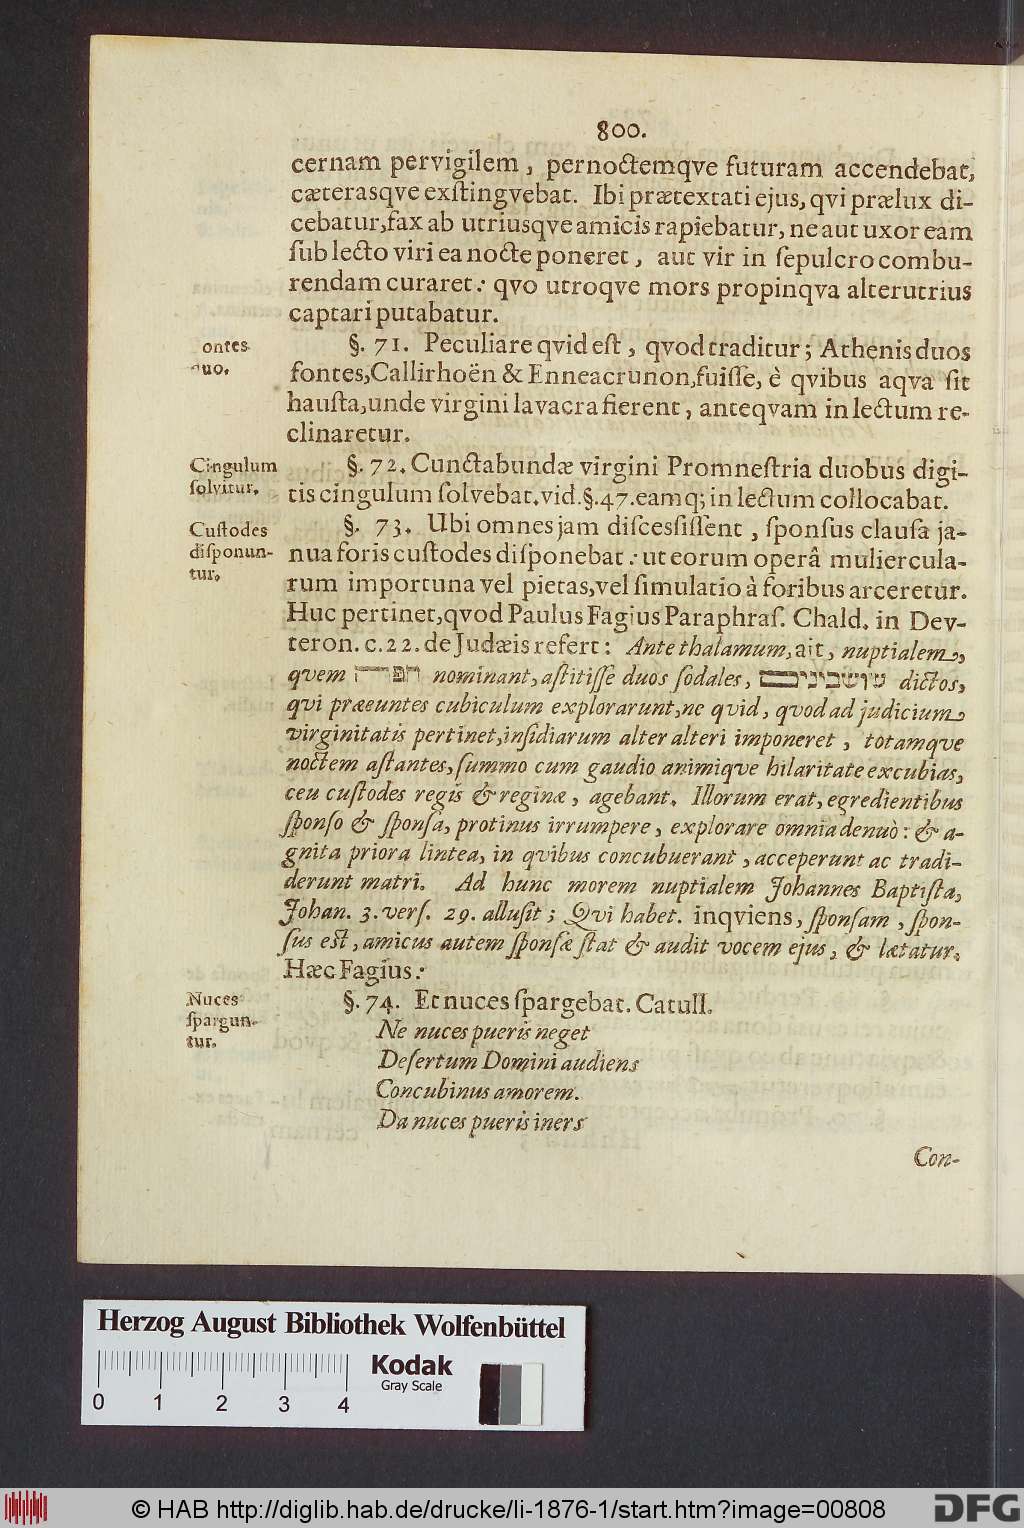 800.
cernam pervigilem, pernoctemqve futuram accendebat,
cæterasqve exſtingvebat. Ibi prætextati ejus, qvi prælux di-
cebatur, fax ab utriusqve amicis rapiebatur, ne aut uxor eam
ſub lecto viri ea nocte poneret, aut vir in ſepulcro combu-
rendam curaret: qvo utroqve mors propinqva alterutrius
captari putabatur.
ontes
uo.
§. 71. Peculiare qvid eſt, qvod traditur; Athenis duos
fontes, Callirhoën & Enneacrunon, fuiſſe, è qvibus aqva ſit
hauſta, unde virgini lavacra fierent, anteqvam in lectum re-
clinaretur.
Cingulum
ſolvitur.
§. 72. Cunctabundæ virgini Promneſtria duobus digi-
tis cingulum ſolvebat. vid. §. 47. eamq; in lectum collocabat.
Cuſtodes
diſponun-
tur.
§. 73. Ubi omnes jam diſceſſiſſent, ſponſus clauſa ja-
nua foris cuſtodes diſponebat: ut eorum operâ muliercula-
rum importuna vel pietas, vel ſimulatio à foribus arceretur.
Huc pertinet, qvod Paulus Fagius Paraphraſ. Chald. in Dev-
teron. c. 22. de Judæis refert: Ante thalamum, ait, nuptialem,
qvem חפה nominant, aſtitiſſe duos ſodales, שושבינים dictos,
qvi præeuntes cubiculum explorarunt, ne qvid, qvod ad judicium
virginitatis pertinet, inſidiarum alter alteri imponeret, totamqve
noctem aſtantes, ſummo cum gaudio animiqve hilaritate excubias,
ceu cuſtodes regis & reginæ, agebant. Illorum erat, egredientibus
ſponſo & ſponſa, protinus irrumpere, explorare omnia denuò: & a-
gnita priora lintea, in qvibus concubuerant, acceperunt ac tradi-
derunt matri. Ad hunc morem nuptialem Johannes Baptiſta,
Johan. 3. verſ. 29. alluſit; Qvi habet. inqviens, ſponſam, ſpon-
ſus eſt, amicus autem ſponſæ ſtat & audit vocem ejus, & lætatur.
Hæc Fagius:
Nuces
ſpargun-
tur.
§. 74. Et nuces ſpargebat. Catull.
Ne nuces pueris neget
Deſertum Domini audiens
Concubinus amorem.
Da nuces pueris iners
Con-
Herzog August Bibliothek Wolfenbüttel
Kodak
Gray Scale
0 1 2 3 4
© HAB http://diglib.hab.de/drucke/li-1876-1/start.htm?image=00808
DFG